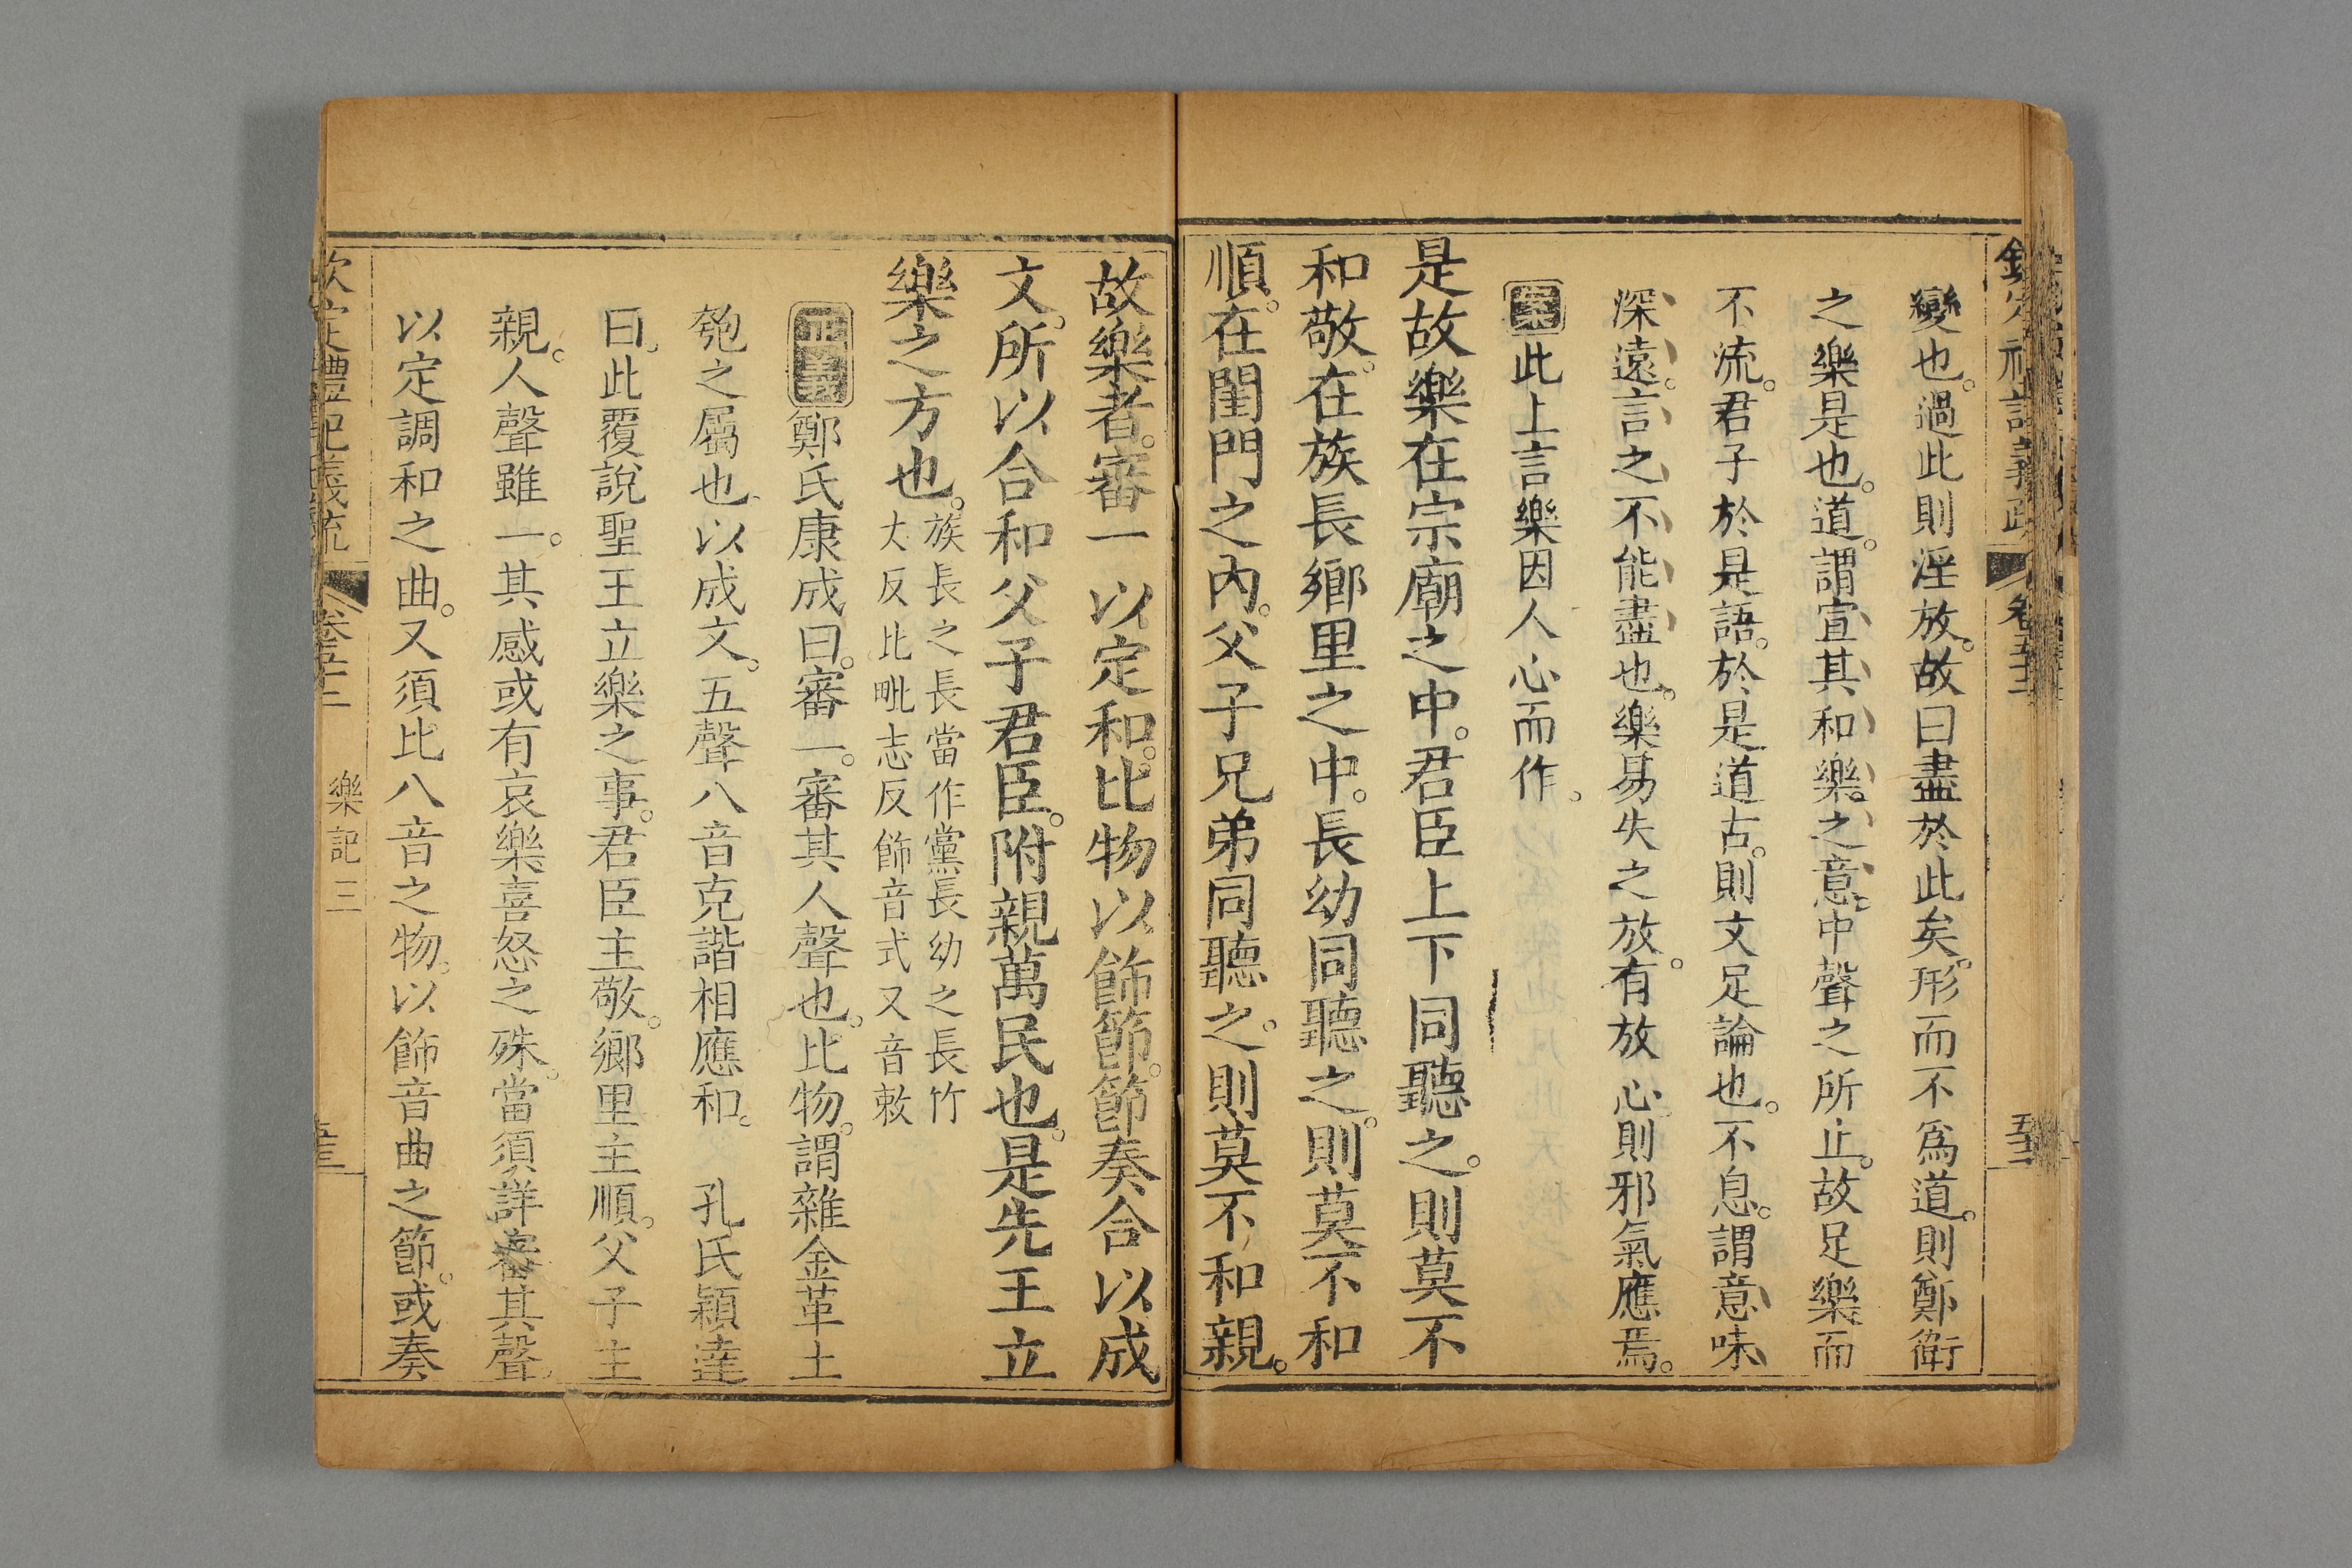 變也。過此則淫放。故曰盡於此矣。形而不爲道。則鄭衛
之樂是也。道。謂宣其和樂之意。中聲之所止。故足樂而
不流。君子於是語。於是道古。則文足論也。不息。謂意味
深遠。言之不能盡也。樂易失之放。有放心則邪氣應焉。
案此上言樂因人心而作。
是故樂在宗廟之中。君臣上下同聽之。則莫不
和敬。在族長鄉里之中。長幼同聽之。則莫不和
順。在閨門之內。父子兄弟同聽之。則莫不和親。
故樂者。審一以定和。比物以飾節。節奏合以成
文。所以合和父子君臣。附親萬民也。是先王立
樂之方也。
族長之長當作黨長幼之長竹
丈反比毗志反飾音式又音敕
正義鄭氏康成曰。審一。審其人聲也。比物。謂雜金革土
匏之屬也。以成文。五聲八音克諧相應和。 孔氏穎達
曰。此覆說聖王立樂之事。君臣主敬。鄉里主順。父子主
親。人聲雖一。其感或有哀樂喜怒之殊。當須詳審其聲
以定調和之曲。又須比八音之物。以飾音曲之節。或奏
欽定禮記義疏 卷五十二 樂記 三